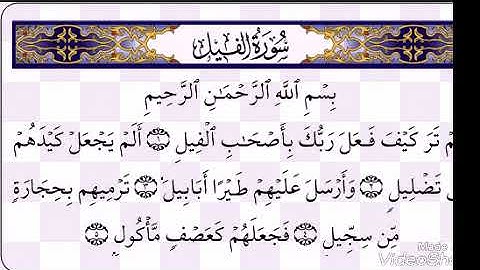 سُورَةُ الفِيلِ
بِسْمِ اللَّهِ الرَّحْمَٰنِ الرَّحِيمِ
تَرَ كَيْفَ فَعَلَ رَبُّكَ بِأَصْحَابِ الْفِيلِ ١ أَلَمْ يَجْعَلْ كَيْدَهُمْ
تَضْلِيلٍ ٢ وَأَرْسَلَ عَلَيْهِمْ طَيْرًا أَبَابِيلَ ٣ تَرْمِيهِم بِحِجَارَةٍ
مِّن سِجِّيلٍ ٤ فَجَعَلَهُمْ كَعَصْفٍ مَّأْكُولٍ ٥
Made
VideoSho